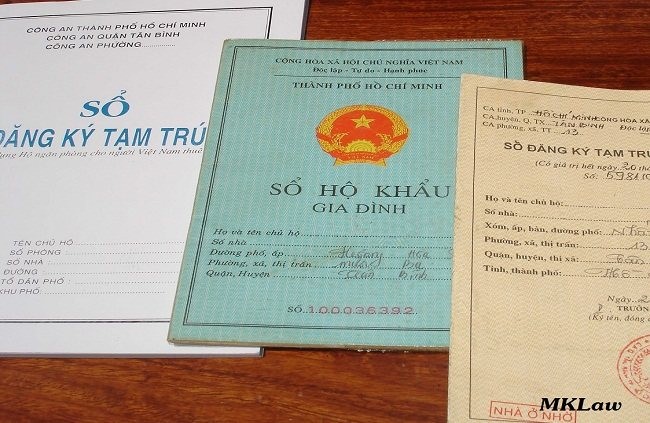 CÔNG AN THÀNH PHỐ HỒ CHÍ MINH
CÔNG AN QUẬN TÂN BÌNH
CÔNG AN PHƯỜNG
SỔ
ĐĂNG KÝ TẠM TRÚ
Hộ ngăn phòng cho người Việt Nam thuê
TÊN CHỦ HỘ
SỐ PHÒNG
SỐ NHÀ
ĐƯỜNG
TỔ DÂN PHỐ
KHU PHỐ:
CỘNG HÒA XÃ HỘI CHỦ NGHĨA VIỆT NAM
Độc lập - Tự do - Hạnh phúc
THÀNH PHỐ HỒ CHÍ MINH
SỔ HỘ KHẨU
GIA ĐÌNH
Họ và tên chủ hộ
Số nhà
Đường phố, ấp
Phường, xã, thị trấn
Quận, Huyện Tân Bình
SỐ: 100036392
CA tỉnh, TP HỒ CHÍ MINH CỘNG HÒA XÃ
CA huyện, Q, TX TÂN BÌNH Độc lập
CA phường, xã, TT 13
SỔ ĐĂNG KÝ TẠM TRÚ
(Có giá trị hết ngày 20 thá
Số:
Họ và tên chủ hộ:
Số nhà:
Xóm, ấp, bản, đường phố:
Phường, xã, thị trấn: 13
Quận, huyện, thị xã: Tân
Tỉnh, thành phố:
Ngày 2
TRƯỞN
(Ký tên, đóng
NHÀ Ở NHỜ
MKLaw